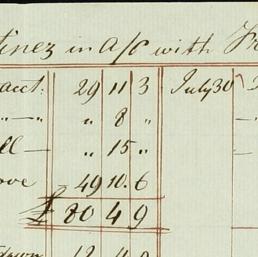 tinez in a/c with Fr
acct. 29 11 3 July 30
„ — „ „ 8 „
ll — „ 15 „
ove 49 10. 6
£ 80 4 9
down 12 4 9